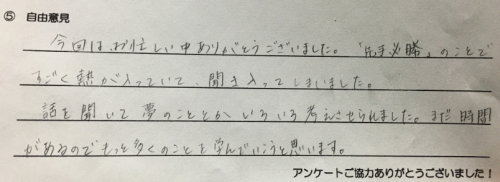 ⑤ 自由意見
今回は、お忙しい中ありがとうございました。「先手必勝」のことで
すごく熱が入っていて、聞き入ってしまいました。
話を聞いて夢のこととかいろいろ考えさせられました。まだ時間
があるのでもっと多くのことを学んでいこうと思います。
アンケートご協力ありがとうございました！